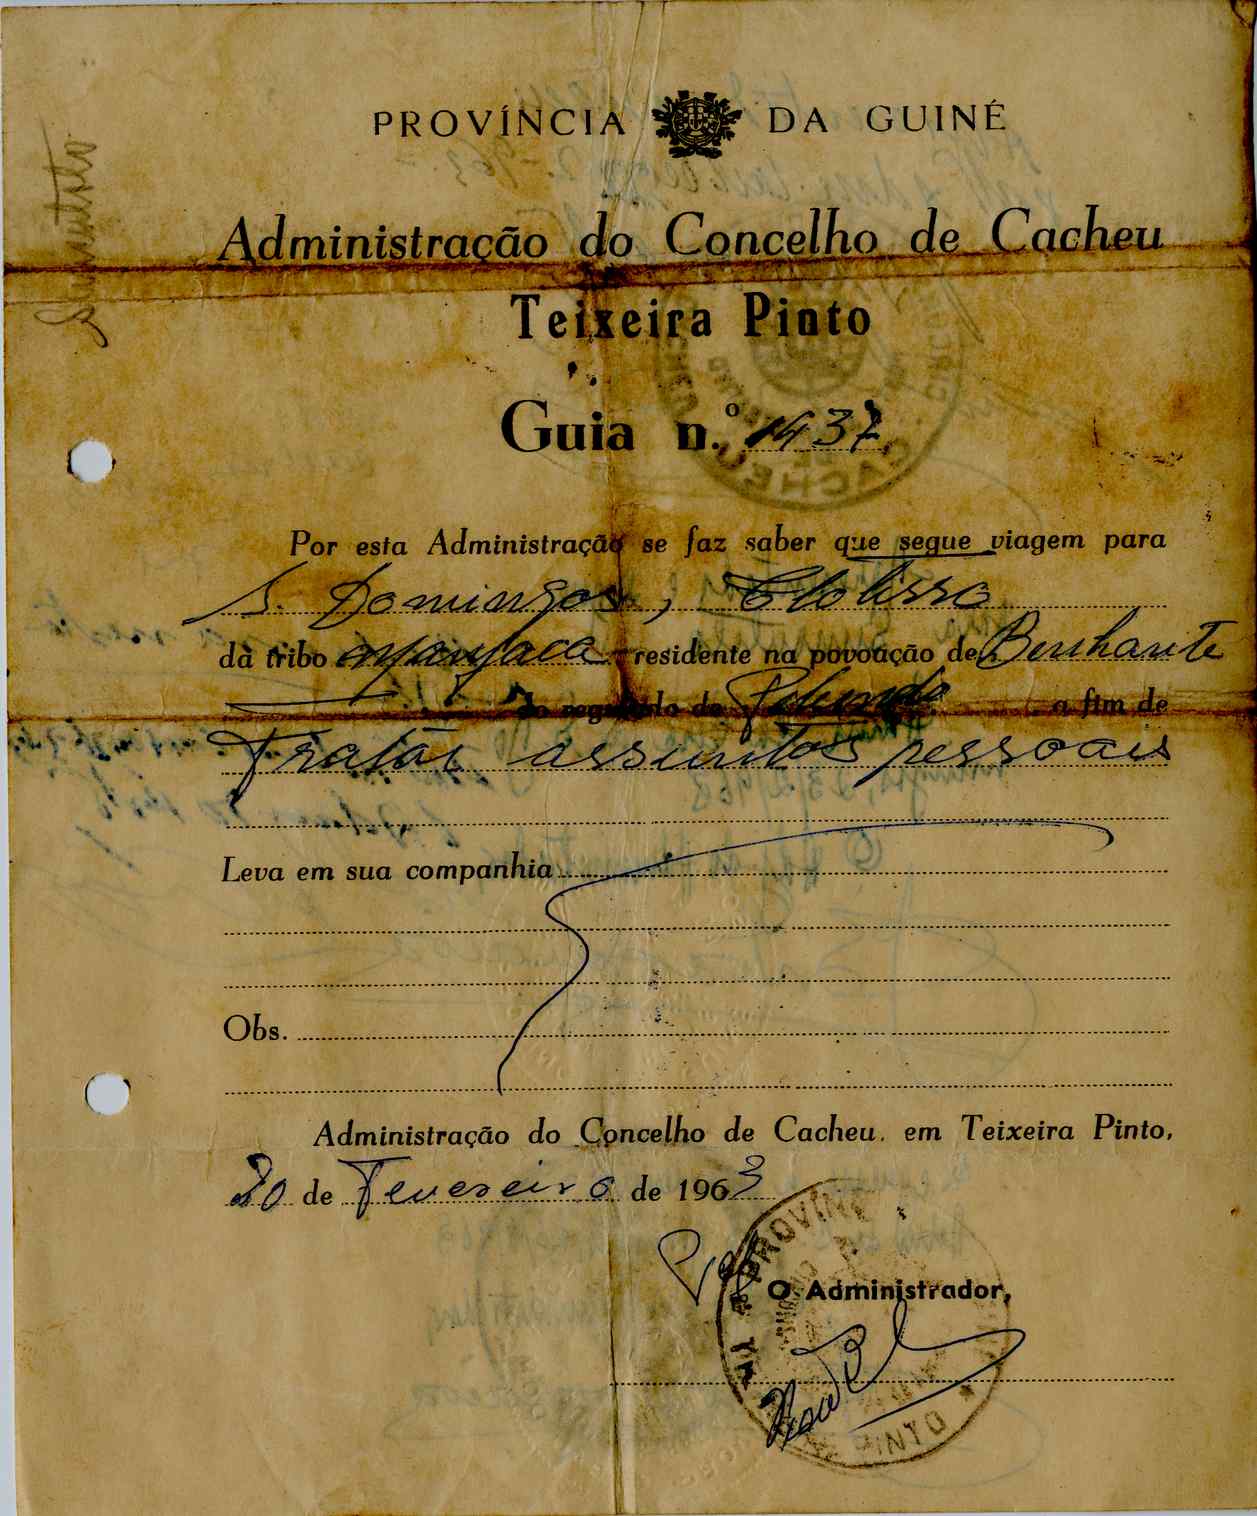 PROVÍNCIA DA GUINÉ
Administração do Concelho de Cacheu
Teixeira Pinto
Guia n.º 1437
Por esta Administração se faz saber que segue viagem para
S. Domingos,
da tribo Manjaca residente na povoação de
do regulado de a fim de
Tratar assuntos pessoais
Leva em sua companhia
Obs.
Administração do Concelho de Cacheu, em Teixeira Pinto,
20 de Fevereiro de 1963
O Administrador,
PROVÍN
PINTO